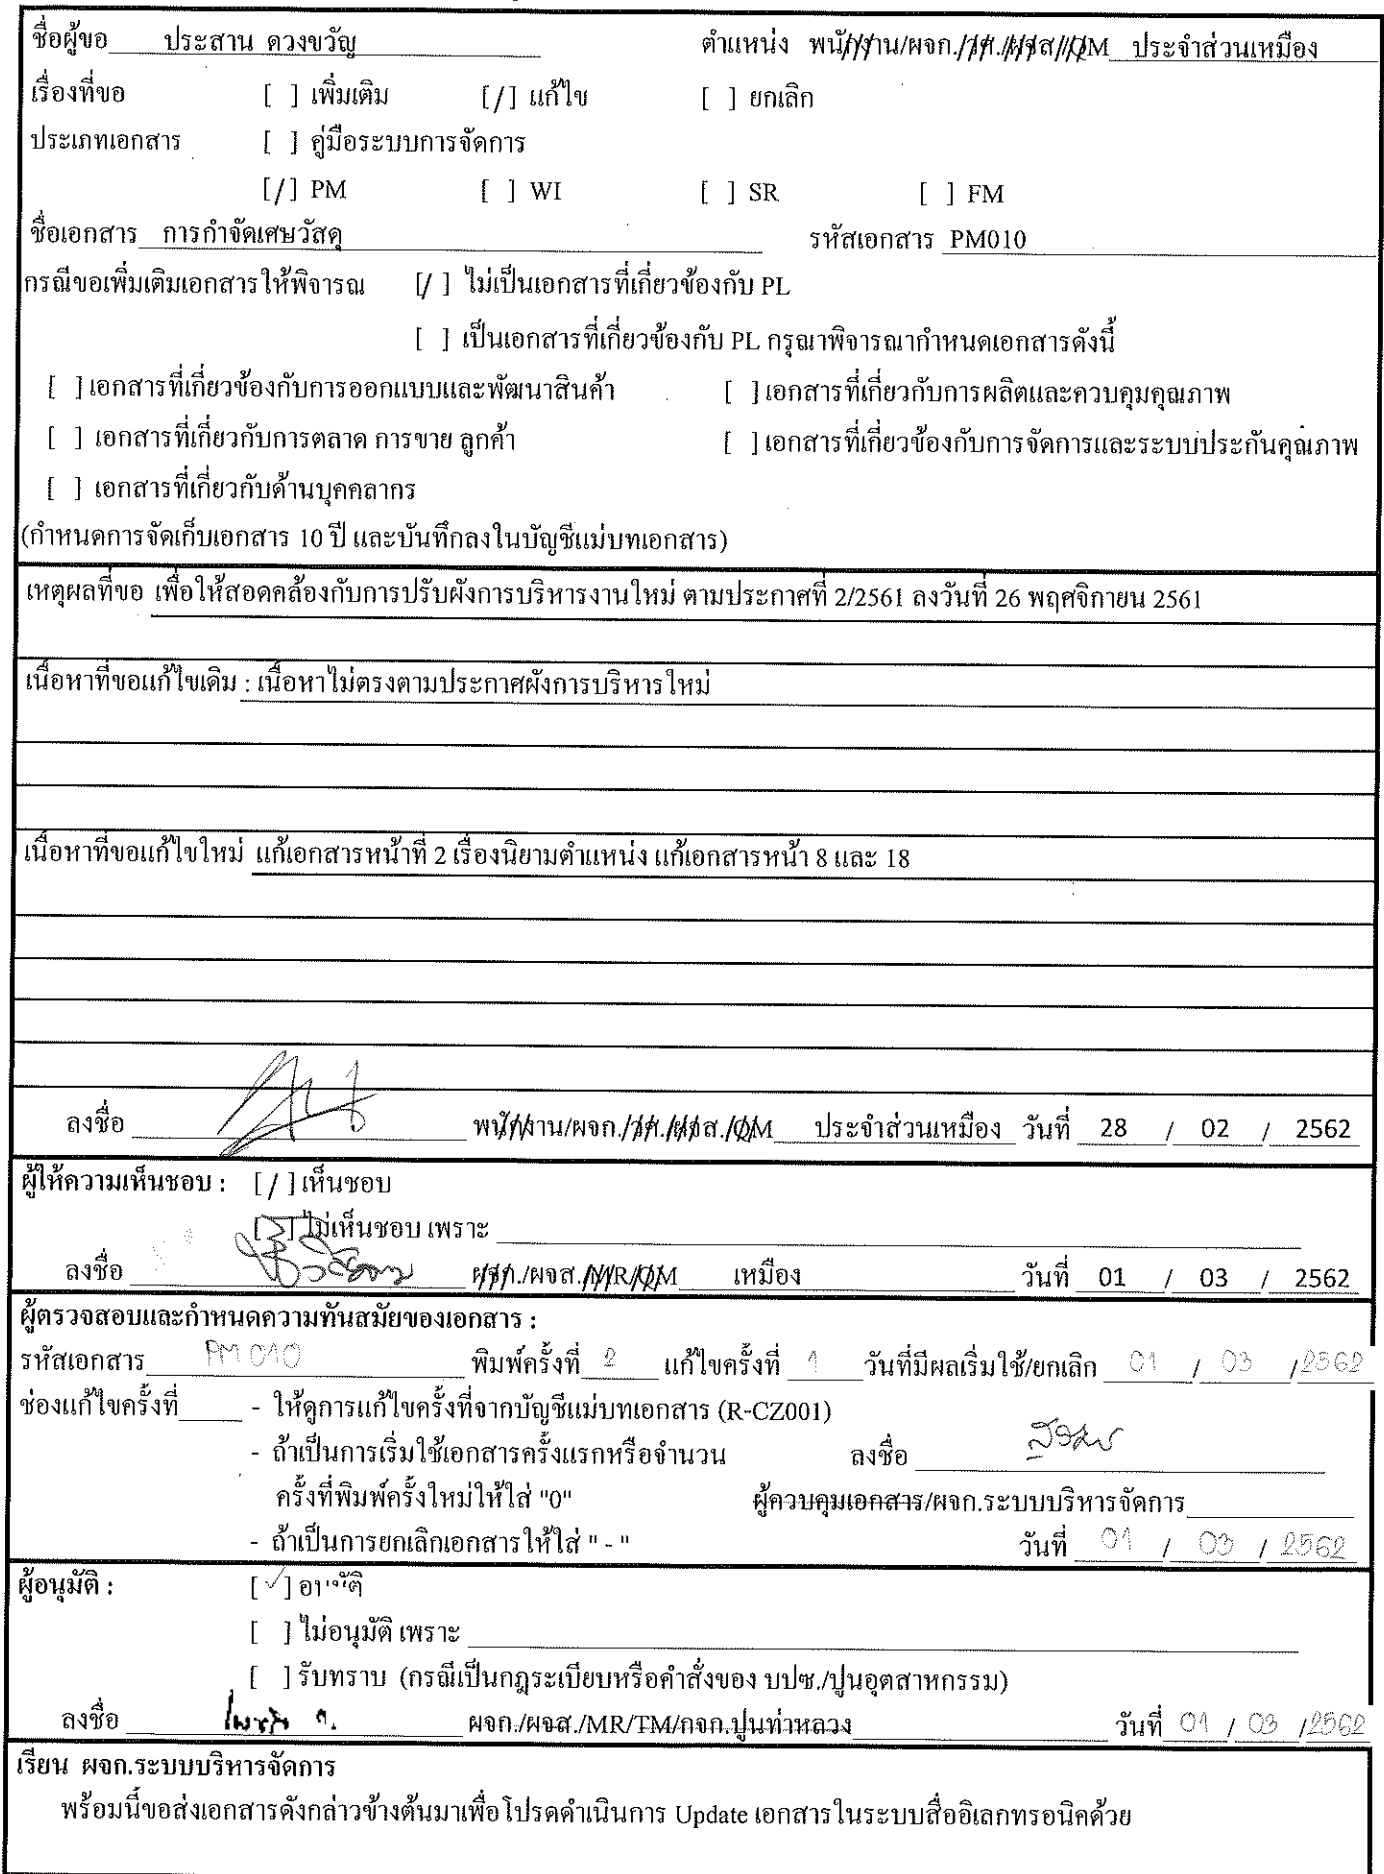 ชื่อผู้ขอ ประสาน ดวงขวัญ ตำแหน่ง พนักงาน/ผจก./วศ./ผจส./QM ประจำส่วนเหมือง
เรื่องที่ขอ [ ] เพิ่มเติม [/] แก้ไข [ ] ยกเลิก
ประเภทเอกสาร [ ] คู่มือระบบการจัดการ
[/] PM [ ] WI [ ] SR [ ] FM
ชื่อเอกสาร การกำจัดเศษวัสดุ รหัสเอกสาร PM010
กรณีขอเพิ่มเติมเอกสารให้พิจารณ [/ ] ไม่เป็นเอกสารที่เกี่ยวข้องกับ PL
[ ] เป็นเอกสารที่เกี่ยวข้องกับ PL กรุณาพิจารณากำหนดเอกสารดังนี้
[ ] เอกสารที่เกี่ยวข้องกับการออกแบบและพัฒนาสินค้า [ ] เอกสารที่เกี่ยวกับการผลิตและควบคุมคุณภาพ
[ ] เอกสารที่เกี่ยวกับการตลาด การขาย ลูกค้า [ ] เอกสารที่เกี่ยวข้องกับการจัดการและระบบประกันคุณภาพ
[ ] เอกสารที่เกี่ยวกับด้านบุคคลากร
(กำหนดการจัดเก็บเอกสาร 10 ปี และบันทึกลงในบัญชีแม่บทเอกสาร)
เหตุผลที่ขอ เพื่อให้สอดคล้องกับการปรับผังการบริหารงานใหม่ ตามประกาศที่ 2/2561 ลงวันที่ 26 พฤศจิกายน 2561
เนื้อหาที่ขอแก้ไขเดิม : เนื้อหาไม่ตรงตามประกาศผังการบริหารใหม่
เนื้อหาที่ขอแก้ไขใหม่ แก้เอกสารหน้าที่ 2 เรื่องนิยามตำแหน่ง แก้เอกสารหน้า 8 และ 18
ลงชื่อ พนักงาน/ผจก./วศ./ผจส./QM ประจำส่วนเหมือง วันที่ 28 / 02 / 2562
ผู้ให้ความเห็นชอบ : [ / ] เห็นชอบ
[ ] ไม่เห็นชอบ เพราะ
ลงชื่อ ผจก./ผจส./MR/QM เหมือง วันที่ 01 / 03 / 2562
ผู้ตรวจสอบและกำหนดความทันสมัยของเอกสาร :
รหัสเอกสาร PM 010 พิมพ์ครั้งที่ 2 แก้ไขครั้งที่ 1 วันที่มีผลเริ่มใช้/ยกเลิก 01 / 03 /2562
ช่องแก้ไขครั้งที่ - ให้ดูการแก้ไขครั้งที่จากบัญชีแม่บทเอกสาร (R-CZ001)
- ถ้าเป็นการเริ่มใช้เอกสารครั้งแรกหรือจำนวน ลงชื่อ
ครั้งที่พิมพ์ครั้งใหม่ให้ใส่ "0" ผู้ควบคุมเอกสาร/ผจก.ระบบบริหารจัดการ
- ถ้าเป็นการยกเลิกเอกสารให้ใส่ " - " วันที่ 01 / 03 / 2562
ผู้อนุมัติ : [ ✓ ] อนุมัติ
[ ] ไม่อนุมัติ เพราะ
[ ] รับทราบ (กรณีเป็นกฎระเบียบหรือคำสั่งของ บปซ./ปูนอุตสาหกรรม)
ลงชื่อ ผจก./ผจส./MR/TM/กจก.ปูนท่าหลวง วันที่ 01 / 03 /2562
เรียน ผจก.ระบบบริหารจัดการ
พร้อมนี้ขอส่งเอกสารดังกล่าวข้างต้นมาเพื่อโปรดดำเนินการ Update เอกสารในระบบสื่ออิเลกทรอนิคด้วย